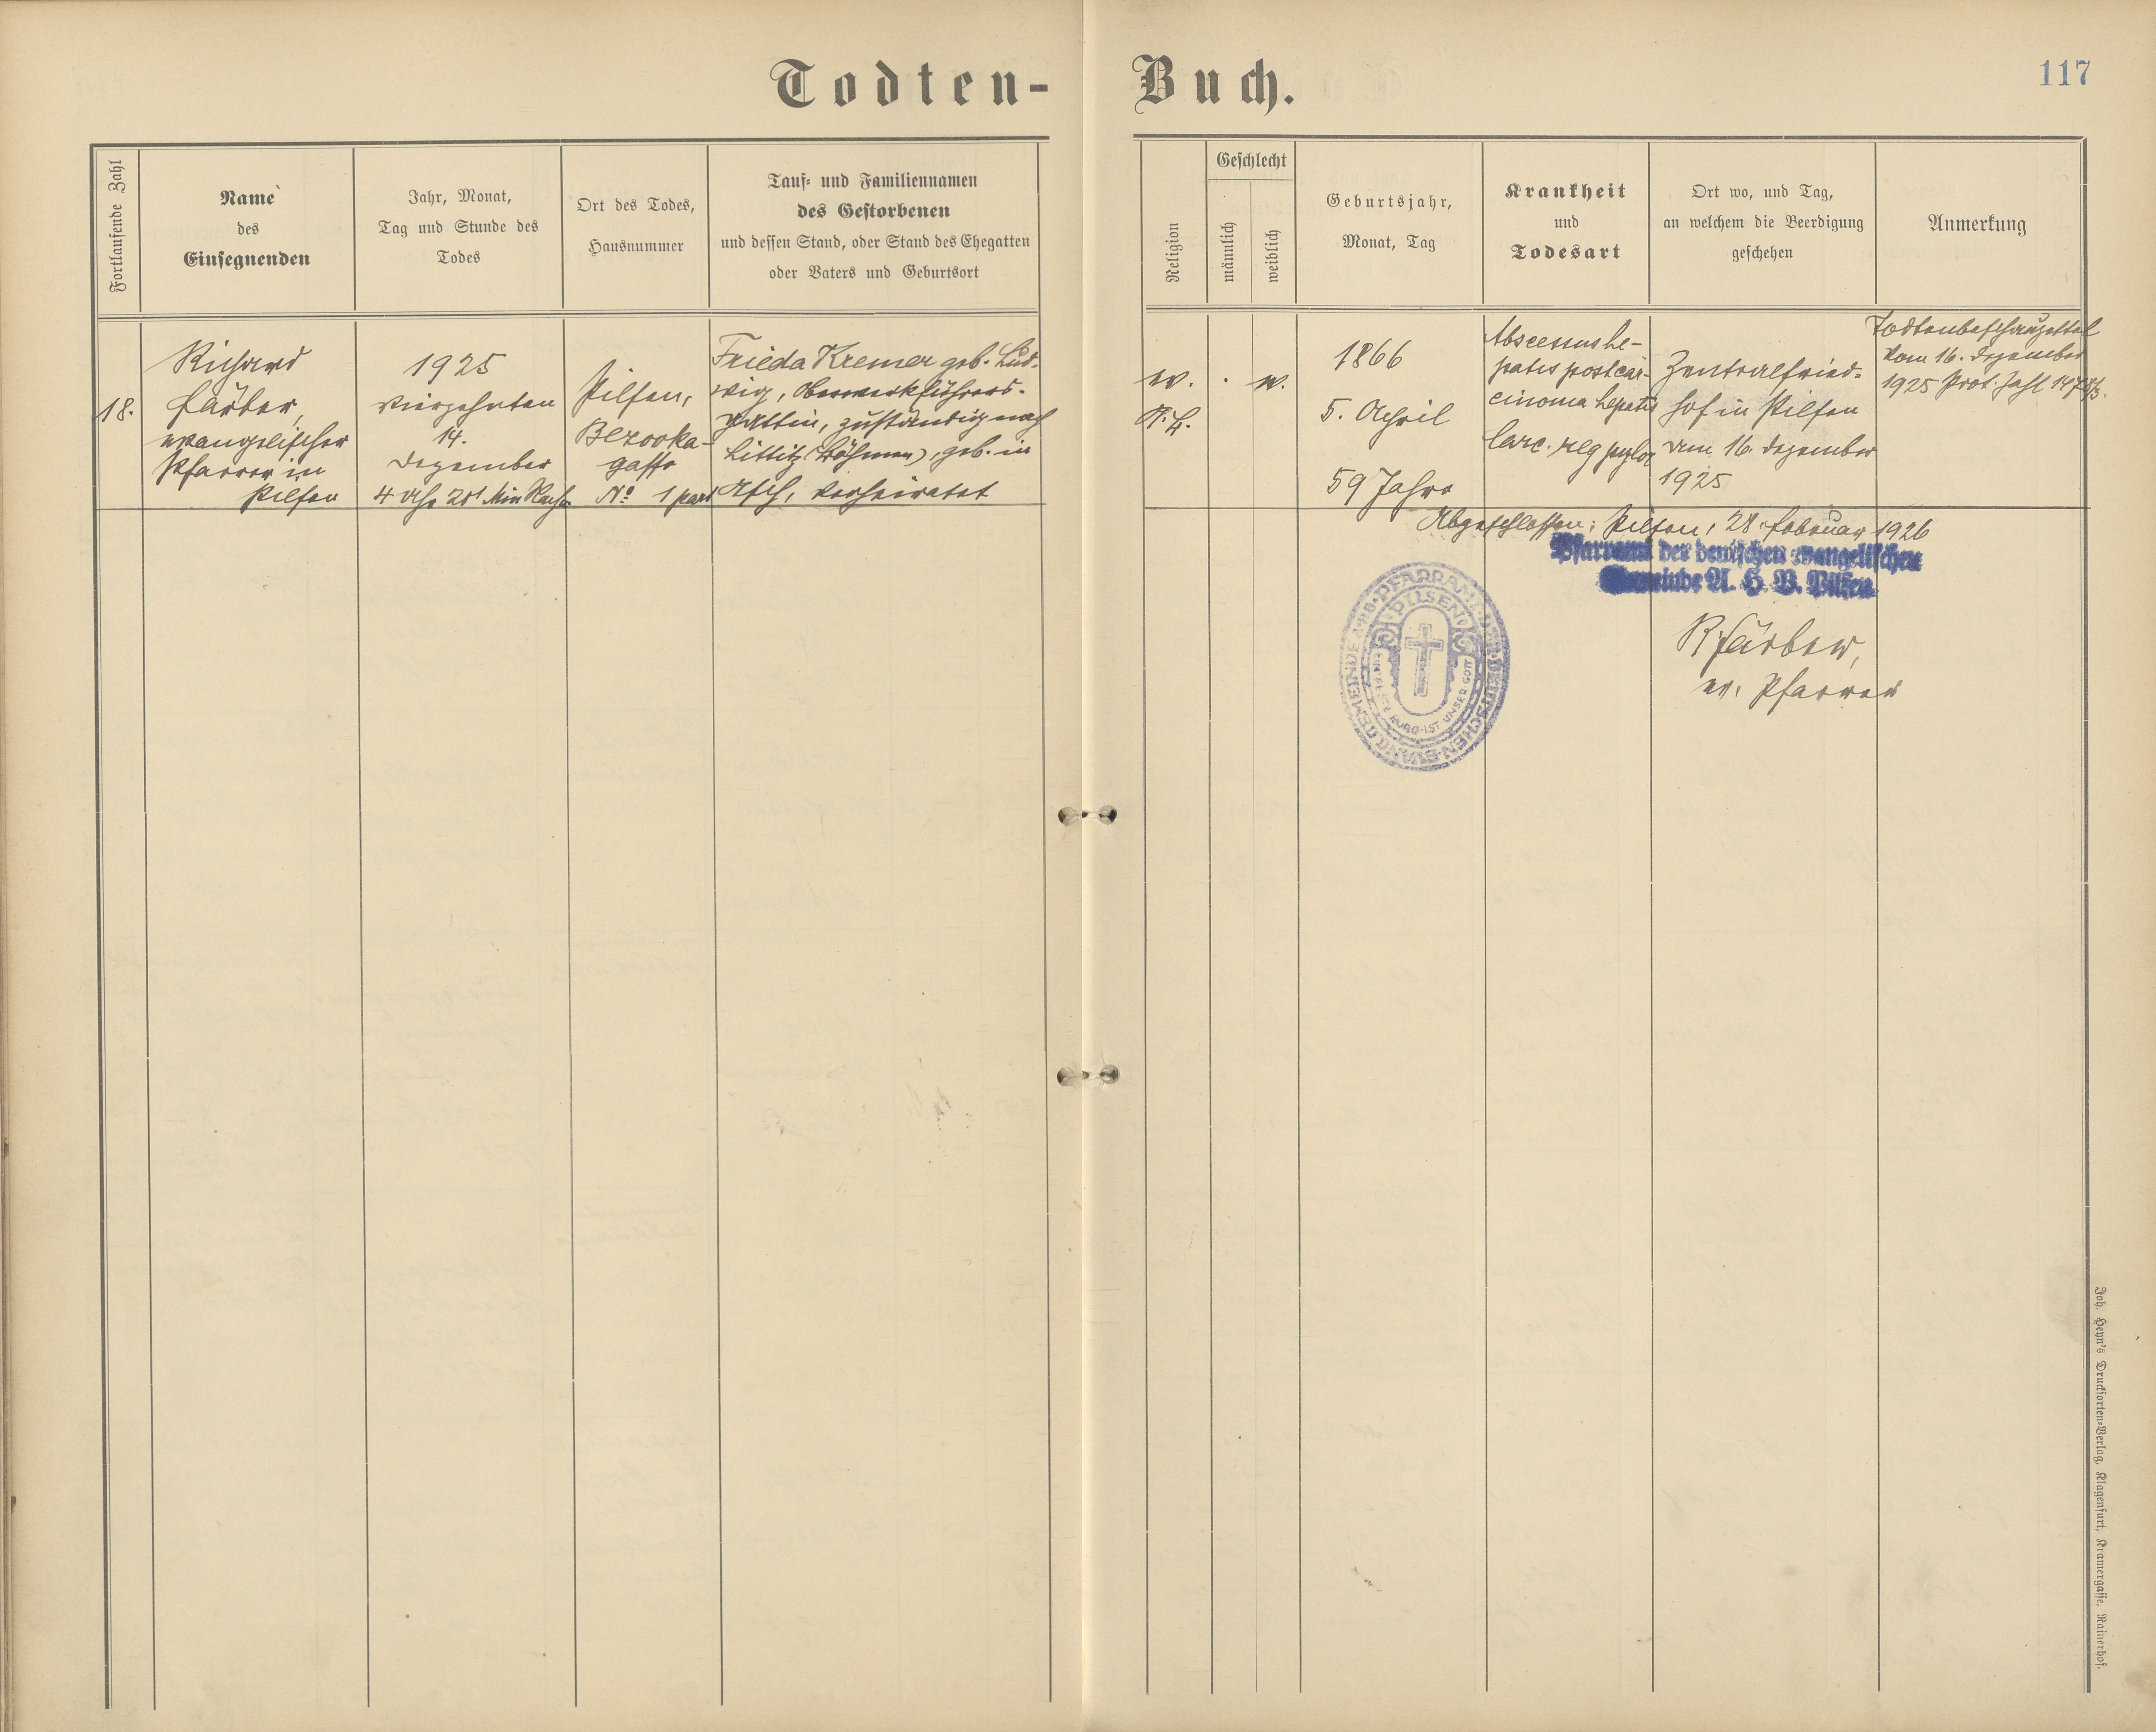 Todten-Buch.
117
Fortlaufende Zahl
Name
des
Einsegnenden
Jahr, Monat,
Tag und Stunde des
Todes
Ort des Todes,
Hausnummer
Tauf- und Familiennamen
des Gestorbenen
und dessen Stand, oder Stand des Ehegatten
oder Vaters und Geburtsort
Religion
Geschlecht
männlich
weiblich
Geburtsjahr,
Monat, Tag
Krankheit
und
Todesart
Ort wo, und Tag,
an welchem die Beerdigung
geschehen
Anmerkung
18.
Richard
Färber,
evangelischer
Pfarrer in
Pilsen
1925
vierzehnten
14.
Dezember
4 Uhr 20 Min Nachm
Pilsen,
Bezovka-
gasse
No 1 part
Frieda Kremer geb. Lud-
wig, Oberwerkführers-
gattin, zuständig nach
Littitz (Böhmen), geb. in
Asch, verheiratet
ev.
A.B.
w.
1866
5. April
59 Jahre
Abscessus he-
patis post car-
cinoma hepatis
Carc. reg pylor
Zentralfried-
hof in Pilsen
am 16. Dezember
1925
Todtenbeschauzettel
vom 16. Dezember
1925 Prot. Zahl
Abgeschlossen: Pilsen, 28. Februar 1926
Pfarramt der deutschen evangelischen
Gemeinde A. B. Pilsen
PFARRAMT DER DEUTSCHEN EVANG. GEMEINDE A.B.
PILSEN
EIN FESTE BURG IST UNSER GOTT
R Färber,
ev. Pfarrer
Joh. Heyn's Drucksorten-Verlag, Klagenfurt, Kramergasse, Rainerhof.